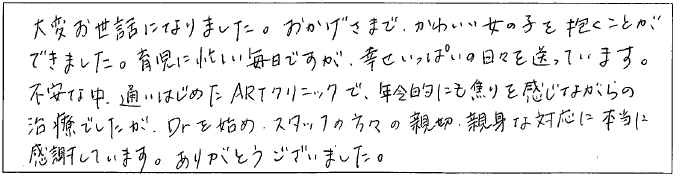 大変お世話になりました。おかげさまで、かわいい女の子を抱くことが
できました。育児に忙しい毎日ですが、幸せいっぱいの日々を送っています。
不安な中、通いはじめたARTクリニックで、年令的にも焦りを感じながらの
治療でしたが、Drを始め、スタッフの方々の親切、親身な対応に本当に
感謝しています。ありがとうございました。